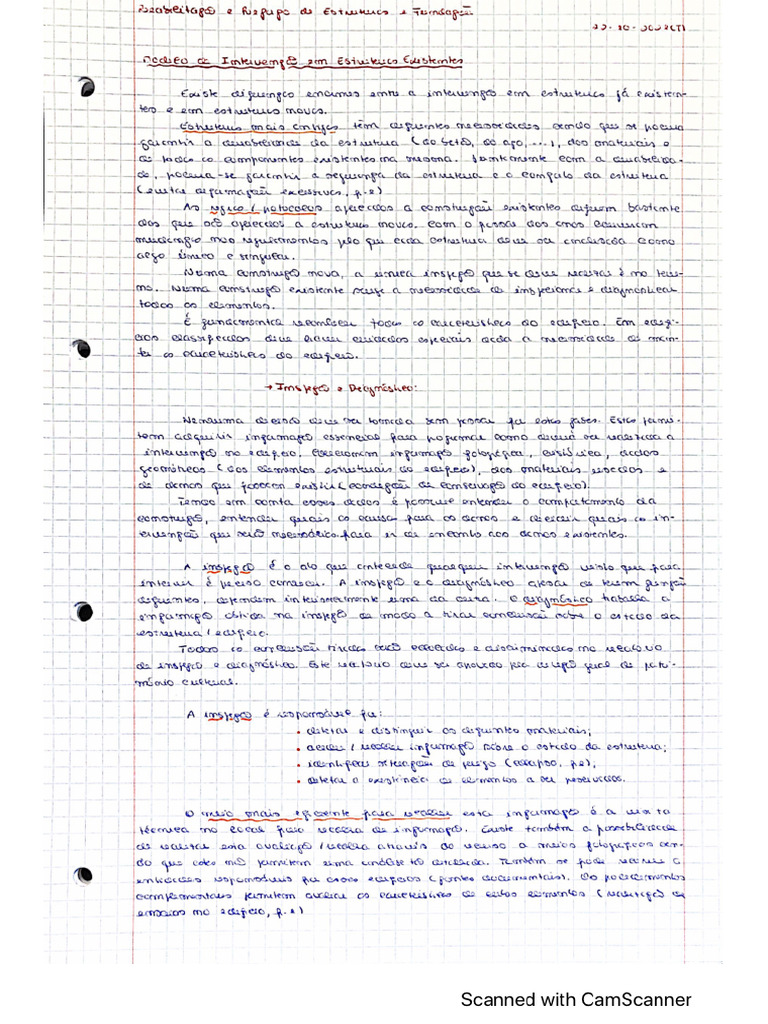 Reabilitação e Reforço de Estruturas e Fundações
Intervenção em Estruturas Existentes
Existe diferenças enormes entre a intervenção em estruturas já existen-
tes e em estruturas novas.
Estruturas mais antigas têm diferentes necessidades sendo que se
garantir a durabilidade da estrutura (do betão, do aço, ...), dos materiais e
de todos os componentes existentes na mesma. Juntamente com a durabilida-
de, garantir a segurança da estrutura e o conforto da estrutura
(evitar deformações excessivas, p.e)
As regras / protocolos aplicados a construções existentes diferem bastante
dos que são aplicados a estruturas novas. Com o passar dos anos
mudanças nos regulamentos pelo que cada estrutura deve ser como
algo único e singular.
Numa construção nova, a única inspeção que se deve realizar é no terre-
no. Numa construção existente surge a necessidade de inspecionar e diagnosticar
todos os elementos.
É fundamental reconhecer todas as características do edifício. Em edifí-
cios classificados deve haver cuidados especiais dada a necessidade de man-
ter as características do edifício.
→ Inspeção e Diagnóstico:
Nenhuma decisão deve ser tomada sem passar por estas fases. Estas permi-
tem adquirir informação essencial para programar como deverá ser realizada a
intervenção no edifício. informação fotográfica, dados
geométricos (dos elementos estruturais do edifício), dos materiais usados e
de danos que possam existir (condição de conservação do edifício).
Tendo em conta esses dados é possível entender o comportamento da
construção, entender quais as causas para os danos e decidir quais as in-
tervenções que serão necessárias para ir de encontro aos danos existentes.
A inspeção é o ato que antecede qualquer intervenção visto que para
intervir é preciso conhecer. A inspeção e o diagnóstico apesar de terem funções
diferentes, dependem inteiramente uma da outra. O diagnóstico trabalha a
informação obtida na inspeção de modo a tirar conclusões sobre o estado da
estrutura / edifício.
Todas as conclusões tiradas são e no relatório
de inspeção e diagnóstico. Este relatório deve ser pela geral de patri-
mónio cultural.
A inspeção é responsável por:
• detetar e distinguir os diferentes materiais;
• / recolher informação sobre o estado da estrutura;
• identificar situações de perigo (colapso, p.e);
• detetar a existência de elementos a ser preservados.
O meio mais eficiente para recolher esta informação é a visita
técnica no local para recolha de informação. Existe também a possibilidade
de realizar esta avaliação / recolha através do recurso a meios fotográficos sen-
do que estes não permitem uma análise tão detalhada. Também se pode recorrer a
entidades responsáveis por esses edifícios (fontes documentais). Os procedimentos
complementares permitem avaliar as características de certos elementos (realização de
ensaios no edifício, p.e)
Scanned with CamScanner